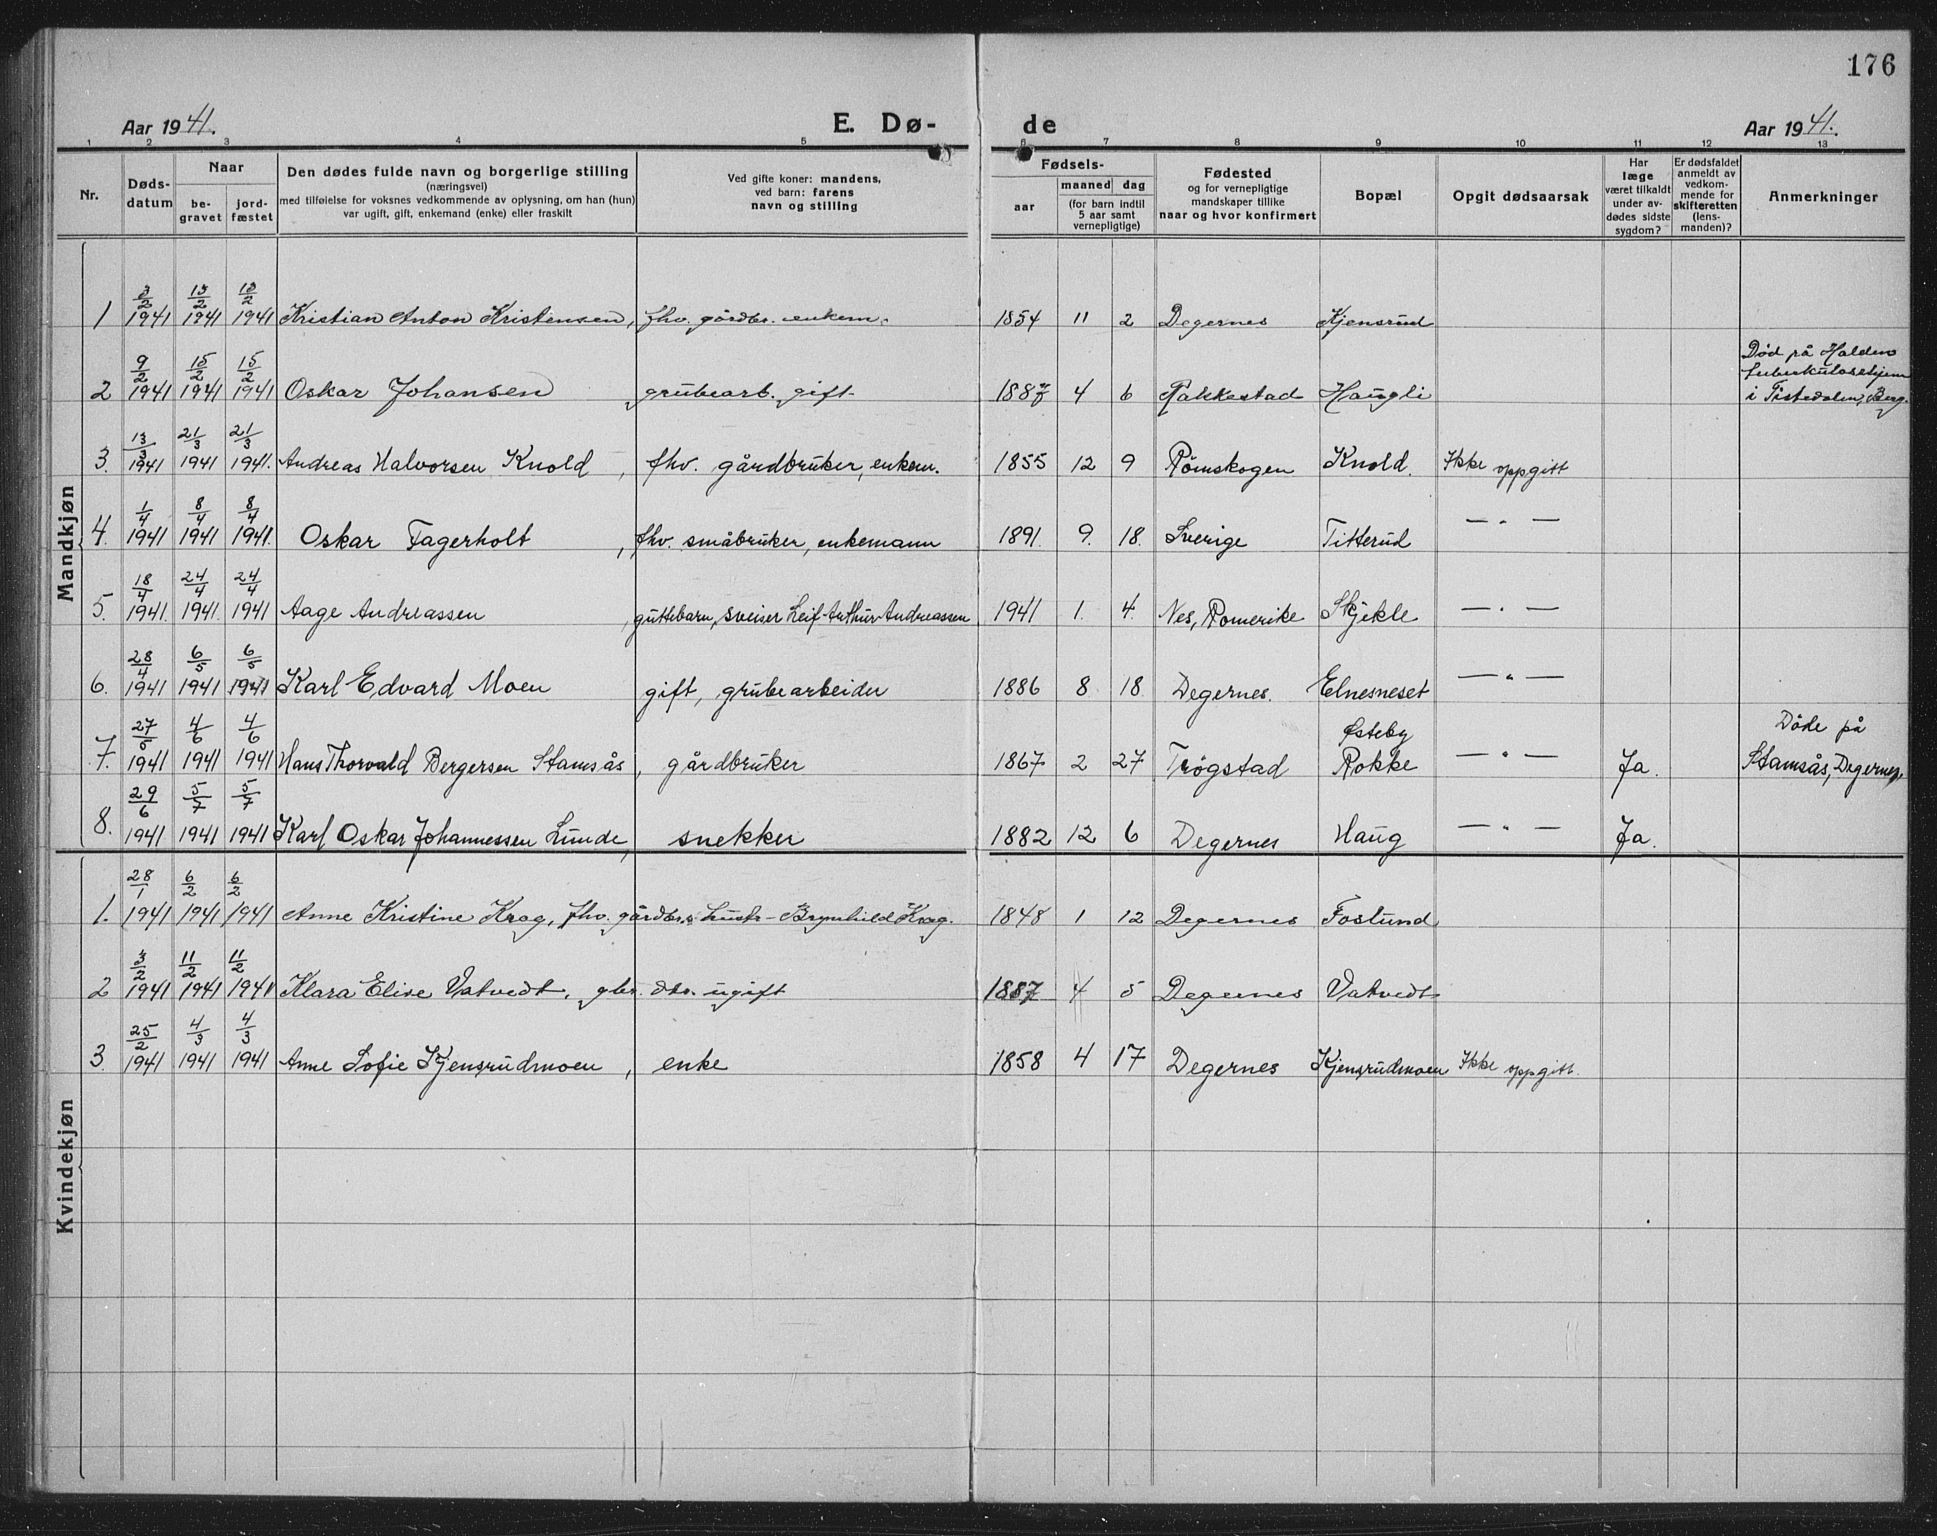 176
Aar 1941. E. Dø- de Aar 1941.
1 2 3 4 5 6 7 8 9 10 11 12 13
Nr. Døds-datum Naar be-gravet jord-fæstet Den dødes fulde navn og borgerlige stilling (næringsvei) med tilføielse for voksnes vedkommende av oplysning, om han (hun) var ugift, gift, enkemand (enke) eller fraskilt Ved gifte koner: mandens, ved barn: farens navn og stilling Fødsels- aar maaned dag (for barn indtil 5 aar samt vernepligtige) Fødested og for vernepligtige mandskaper tillike naar og hvor konfirmert Bopæl Opgit dødsaarsak Har læge været tilkaldt under av-dødes sidste sygdom? Er dødsfaldet anmeldt av vedkom-mende for skifteretten (lens-manden)? Anmerkninger
Mandkjøn
1 3/2 1941 13/2 1941 13/2 1941 Kristian Anton Kristensen, fhv. gårdbr. enkem. 1854 11 2 Degernes Kjensrud
2 9/2 1941 15/2 1941 15/2 1941 Oskar Johansen grubearb. gift 1887 4 6 Rakkestad Haugli Død på Haldens tuberkulosehjem i Tistedalen, Berg.
3. 13/3 1941 21/3 1941 21/3 1941. Andreas Halvorsen Knold, fhv. gårdbruker, enkem. 1855 12 9 Rømskogen Knold. Ikke oppgitt
4. 1/4 1941 8/4 1941 8/4 1941. Oskar Fagerholt, fhv. småbruker, enkemann 1891. 9. 18. Sverige Titterud — " —
5. 18/4 1941. 24/4 1941. 24/4 1941 Aage Andreassen, guttebarn, sveiser Leif Arthur Andreassen 1941 1. 4. Nes, Romerike Skjekle — " —
6. 28/4 1941 6/5 1941 6/5 1941 Karl Edvard Moen gift, grubearbeider 1886 8 18. Degernes. Elnesneset — " —
7. 27/5 1941 4/6 1941 4/6 1941 Hans Thorvald Bergersen Stamsås, gårdbruker 1867 2 27 Trøgstad Østeby Rokke — " — Ja. Døde på Stamsås, Degernes.
8. 29/6 1941 5/7 1941 5/7 1941 Karl Oskar Johannessen Lunde, snekker 1882 12 6 Degernes Haug — " — Ja.
Kvindekjøn
1. 28/1 1941 6/2 1941 6/2 1941 Anne Kristine Krog, fhv. gårdbr.s hustr. Brynhild Krog. 1848 1 12 Degernes Foslund
2 3/2 1941 11/2 1941 11/2 1941 Klara Elise Vatvedt, gbr. dtr. ugift 1887 4 5 Degernes Vatvedt
3. 25/2 1941 4/3 1941 4/3 1941 Anne Sofie Kjensrudmoen, enke 1858 4 17 Degernes Kjensrudmoen Ikke oppgitt.